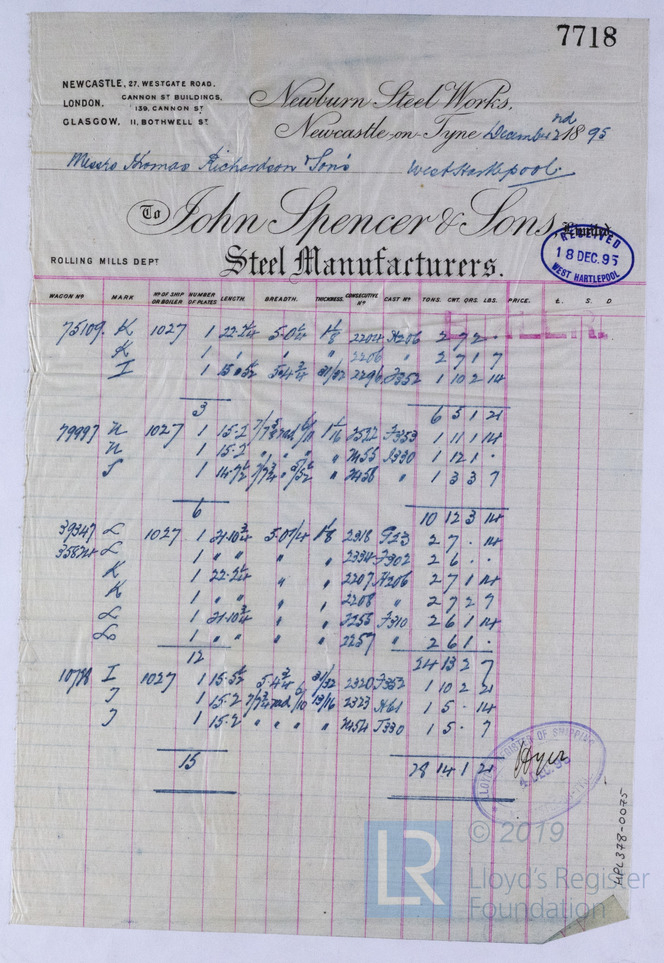 7718
NEWCASTLE, 27, WESTGATE ROAD.
LONDON. CANNON ST BUILDINGS, 139, CANNON ST
GLASGOW. 11, BOTHWELL ST
Newburn Steel Works,
Newcastle-on-Tyne December 2nd 1895
Messrs Thomas Richardson & Sons West Hartlepool.
To John Spencer & Sons, Limited,
RECEIVED
18 DEC. 95
WEST HARTLEPOOL
ROLLING MILLS DEPT Steel Manufacturers.
WAGON No MARK No OF SHIP OR BOILER NUMBER OF PLATES LENGTH. BREADTH. THICKNESS. CONSECUTIVE No CAST No TONS. CWT. QRS. LBS. PRICE. £. S. D
75109 K 1027 1 1 1/8 2204 H206 2 7 2 .
K 1 " " " 2206 " 2 7 1 7
I 1 31/32 2296 F352 1 10 2 14
3 6 5 1 21
79997 N 1027 1 15-2 1 1/16 F353 1 11 1 14
N 1 15-2 " " " 2455 J330 1 12 1 .
J 1 " 2458 " 1 3 3 7
6 10 12 3 14
39347 L 1027 1 21-10 3/4 5-0 1/4 1 1/8 2318 G23 2 7 . 14
35824 L 1 " " " " 2334 F302 2 6 . .
K 1 22-2 1/4 " " 2207 H206 2 7 1 14
K 1 " " 2208 " 2 7 2 7
L 1 21-10 3/4 " " 2255 F310 2 6 1 14
L 1 " " " 2257 " 2 6 1 .
12 24 13 2 7
10788 I 1027 1 15-5 1/2 5-4 3/4 31/32 2320 F352 1 10 2 21
J 1 15-2 13/16 2323 H61 1 5 . 14
J 1 15-2 " " " " 2454 J330 1 5 . 7
15 28 14 1 21
LLOYD'S REGISTER OF SHIPPING
DEC. 95
HPL378-0075
LR
© 2019
Lloyd's Register
Foundation